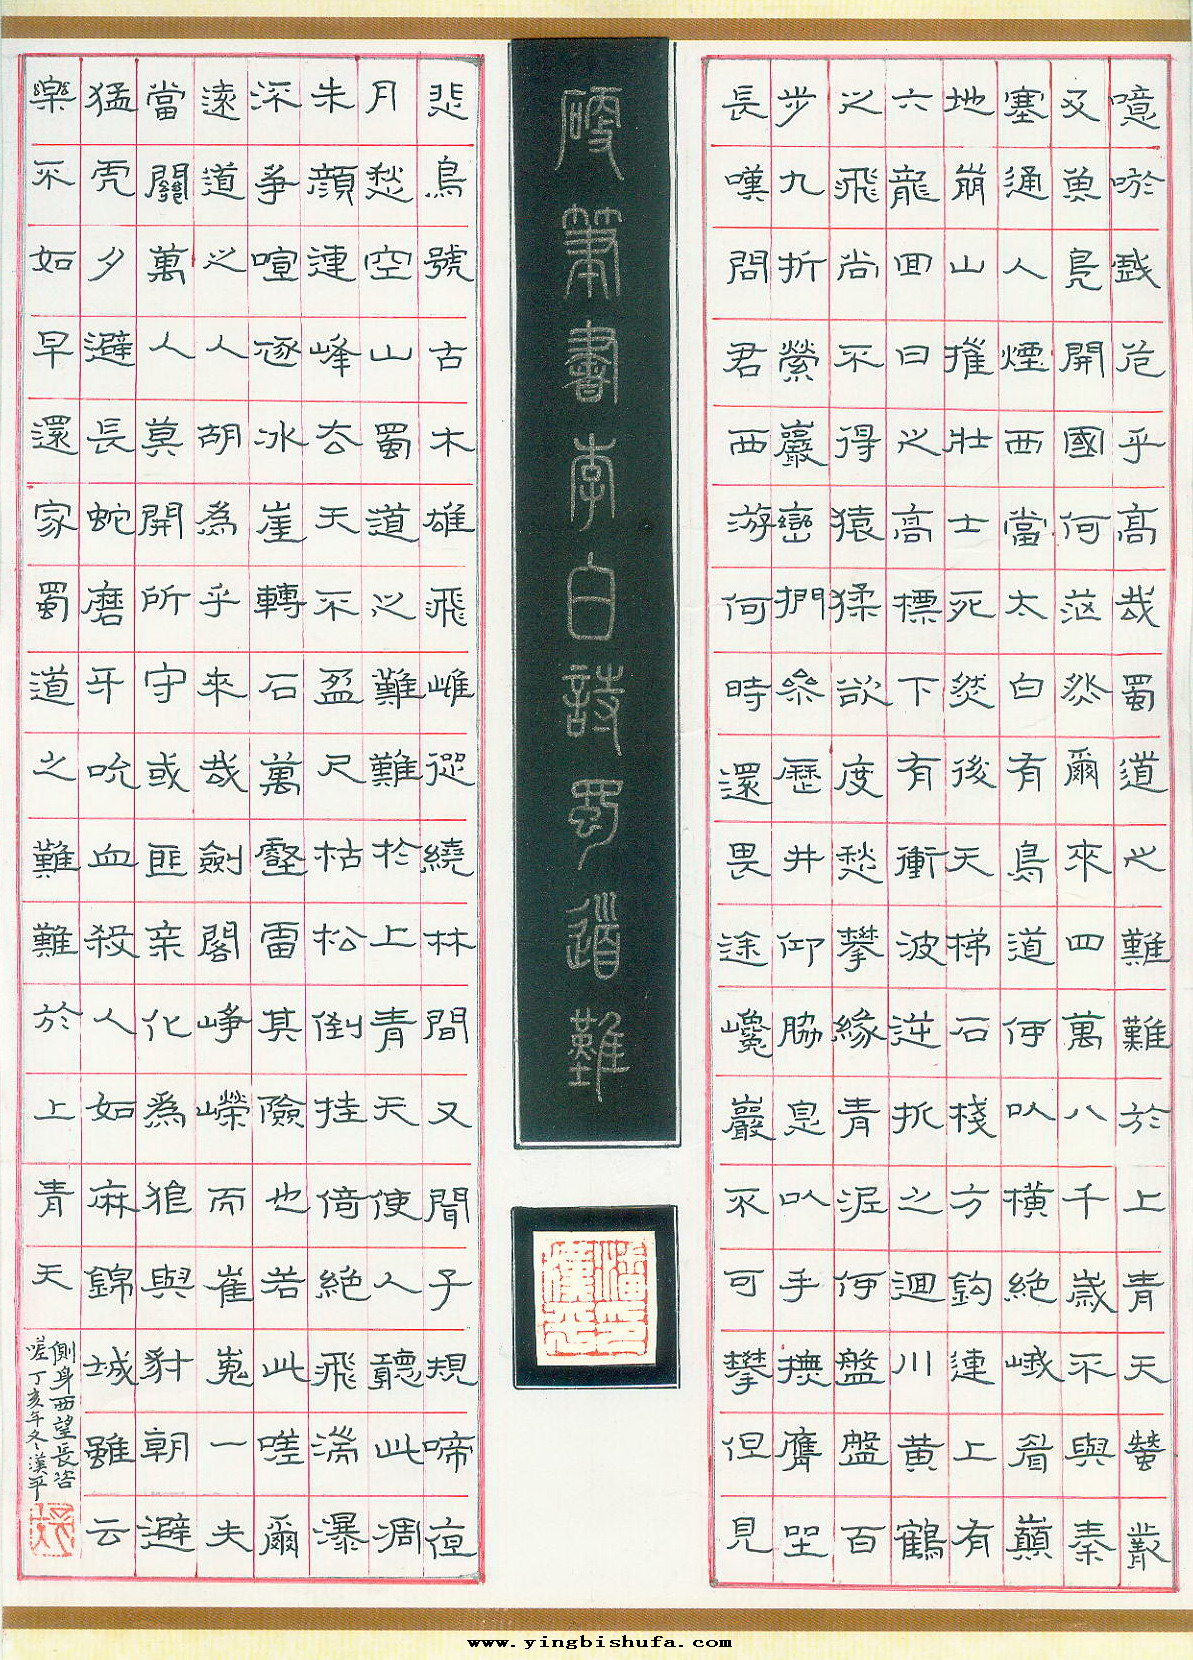 噫吁戲危乎高哉蜀道之難難於上青天蠶叢
及魚鳧開國何茫然爾來四萬八千歲不與秦
塞通人煙西當太白有鳥道何以橫絕峨眉巔
地崩山摧壯士死然後天梯石棧方鈎連上有
六龍回日之高標下有衝波逆折之迴川黃鶴
之飛尚不得猿猱欲度愁攀緣青泥何盤盤百
步九折縈巖巒捫參歷井仰脇息以手撫膺坐
長嘆問君西游何時還畏途巉巖不可攀但見
硬筆書李白詩蜀道難
潘印漢平
悲鳥號古木雄飛雌從繞林間又聞子規啼夜
月愁空山蜀道之難難於上青天使人聽此凋
朱顏連峰去天不盈尺枯松倒挂倚絕飛湍瀑
深爭喧逐冰崖轉石萬壑雷其險也若此嗟爾
遠道之人胡為乎來哉劍閣崢嶸而崔嵬一夫
當關萬人莫開所守或匪亲化為狼與豺朝避
猛虎夕避長蛇磨牙吮血殺人如麻錦城雖云
樂不如早還家蜀道之難難於上青天
側身西望長咨
嗟丁亥年冬漢平
www.yingbishufa.com